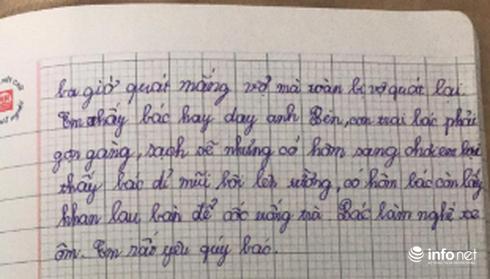 ba giờ quát mắng vợ mà toàn bị vợ quát lại.
Em thấy bác hay dạy anh Bền, con trai bác phải
gọn gàng, sạch sẽ nhưng có hôm sang chơi em lại
thấy bác dỉ mũi bôi lên tường, có hôm bác còn lấy
khan lau bàn để cốc uống trà Bác làm nghề xe
ôm. Em rất yêu quý bác.
infonet